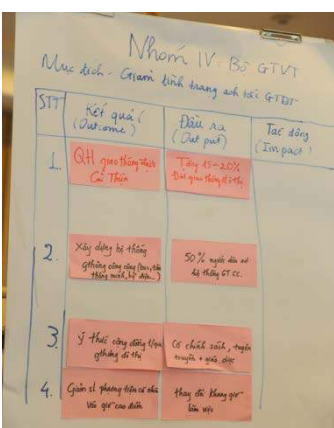 Nhóm IV: Bộ GTVT
Mục đích - Giảm tình trạng ách tắc GTĐT
STT
Kết quả
(Outcome)
Đầu ra
(Out put)
Tác động
(Impact)
1.
QH giao thông được
Cải Thiện
Tăng 15-20%
Đất giao thông đô thị
2.
Xây dựng hệ thống
gthông công cộng (bus, tàu
thông minh, bộ điện...)
50% người dân sd
hệ thống GTCC.
3.
Ý thức cộng đồng t/gia
gthông đô thị
Có chính sách, tuyên
truyền + giáo dục
4.
Giảm sl phương tiện cá nhân
Vào giờ cao điểm
thay đổi khung giờ
làm việc